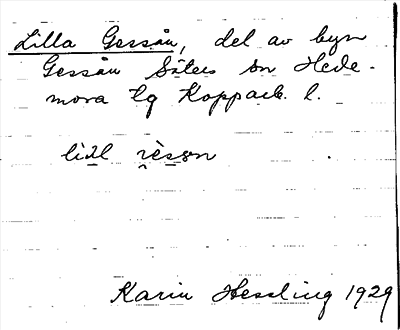 Lilla Gessån, del av byn
Gessån Säters sn Hede-
mora tg Kopparb. l.
lidl
Karin Hessling 1929